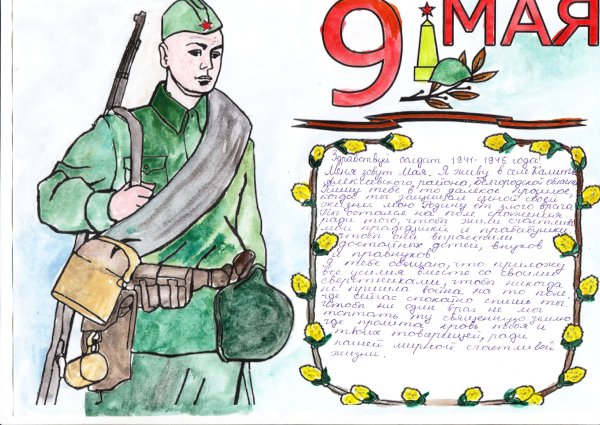 9 МАЯ
Здравствуй солдат 1941-1945 года!
Меня зовут Мая. Я живу в селе Калитва
Алексеевского района, Белгородской области
Пишу тебе в то далекое прошлое,
когда ты защищал ценой своей
жизни нашу Родину от злого врага
Ты остался на поле сражения
ради того, чтобы жили счастливо
мои прадедушки и прабабушки
чтобы они вырастили
достойных детей, внуков
и правнуков.
Я тебе обещаю, что приложу
все усилия вместе со своими
сверстниками, чтобы никогда
не пришла война на то поле
где сейчас спокойно спишь ты,
чтоб ни один враг не мог
топтать ту священную землю
где пролита кровь твоя и
твоих товарищей, ради
нашей мирной счастливой
жизни.